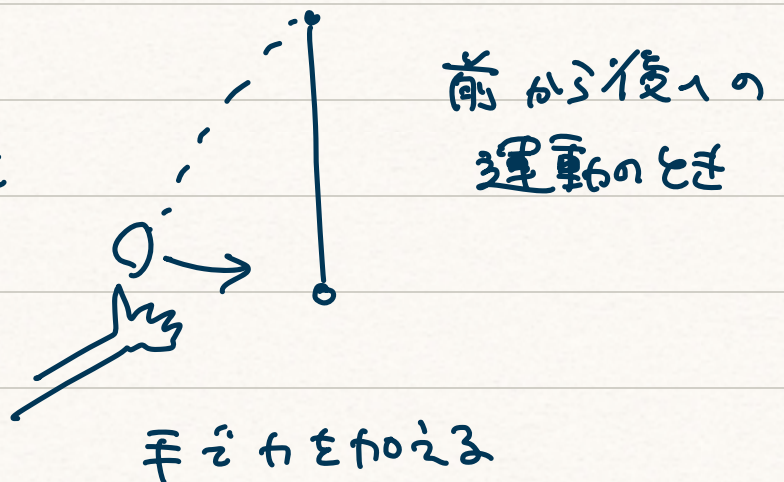 前から後への
運動のとき
手で力を加える